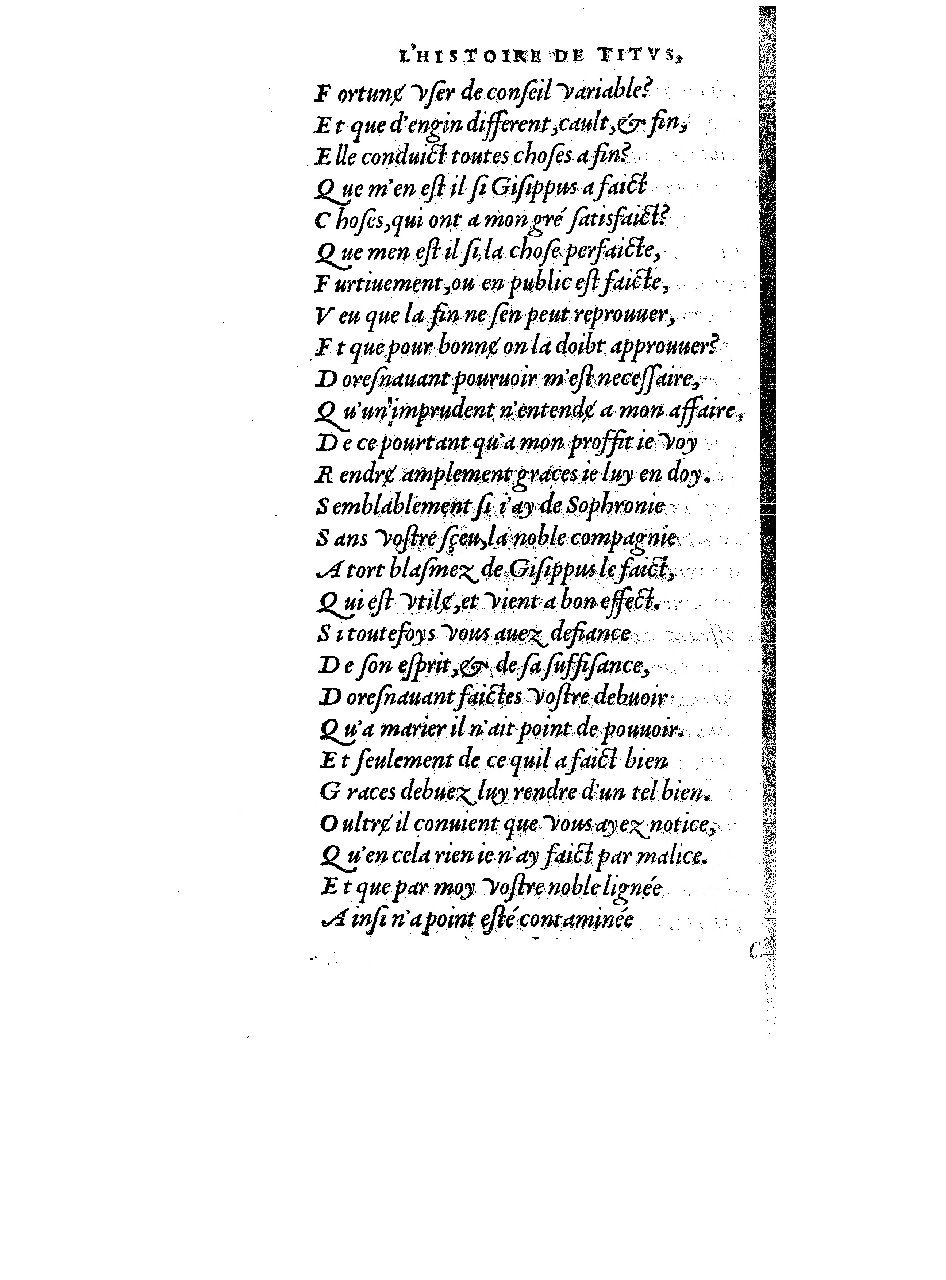 L'HISTOIRE DE TITVS,
Fortunɇ vſer de conſeil variable?
Et que d'engin different, cault, & fin,
Elle conduict toutes choſes a fin?
Que m'en eſt il ſi Giſippus a faict
Choſes, qui ont a mon gré ſatisfaict?
Que men eſt il ſi, la choſe perfaicte,
Furtiuement, ou en public eſt faicte,
Veu que la fin ne ſen peut reprouuer,
Et que pour bonnɇ on la doibt approuuer?
Doreſnauant pouruoir m'eſt neceſſaire,
Qu'un imprudent n'entendɇ a mon affaire,
De ce pourtant qu'a mon proffit ie voy
Rendrɇ amplement graces ie luy en doy.
Semblablement ſi i'ay de Sophronie
Sans voſtre ſçeu, la noble compagnie
A tort blaſmez de Giſippus le faict,
Qui eſt vtilɇ, et vient a bon effect.
Si toutefoys vous auez defiance
De ſon eſprit, & de ſa ſuffiſance,
Doreſnauant faictes voſtre debuoir
Qu'a marier il n'ait point de pouuoir.
Et ſeulement de ce quil a faict bien
Graces debuez luy rendre d'un tel bien.
Oultrɇ il conuient que vous ayez notice,
Qu'en cela rien ie n'ay faict par malice.
Et que par moy voſtre noble lignée
Ainſi n'a point eſté contaminée
C